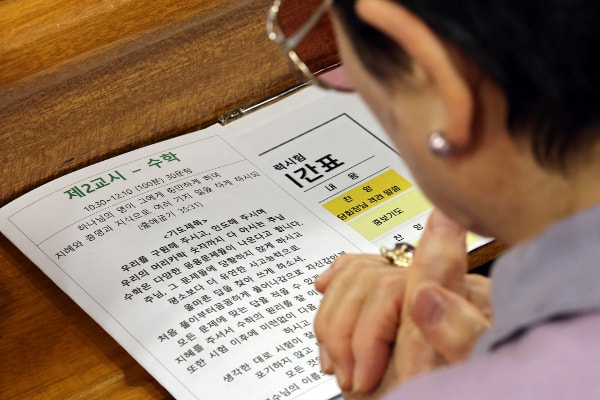 제2교시 - 수학
10:30-12:10 (100분) 30문항
하나님의 영이 그에게 충만하게 하여
지혜와 총명과 지식으로 여러 가지 일을 하게 하시되
(출애굽기 35:31)
<기도제목>
우리를 구원해 주시고, 인도해 주시며
우리의 머리카락 숫자까지 다 아시는 주님
수학은 다양한 응용문제들이 나온다고 합니다.
주님, 그 문제들에 당황하지 않게 하시고
평소보다 더 유연한 사고능력으로
올바른 답을 찾아 쓰게 하소서.
처음 풀이부터 꼼꼼하게 풀어나감으로 자신감있게
모든 문제에 맞는 답을 적을 수 있
지혜를 주셔서 수학의 원리를 잘 이
또한 시험 이후에 미련없이 다음
하시고
생각한 대로 시험이 잘
포기하지 않고
모든 것
예수님의 이름
력시험
간표
내 용
찬 양
담회장님 격려 말씀
중보기도
찬 양